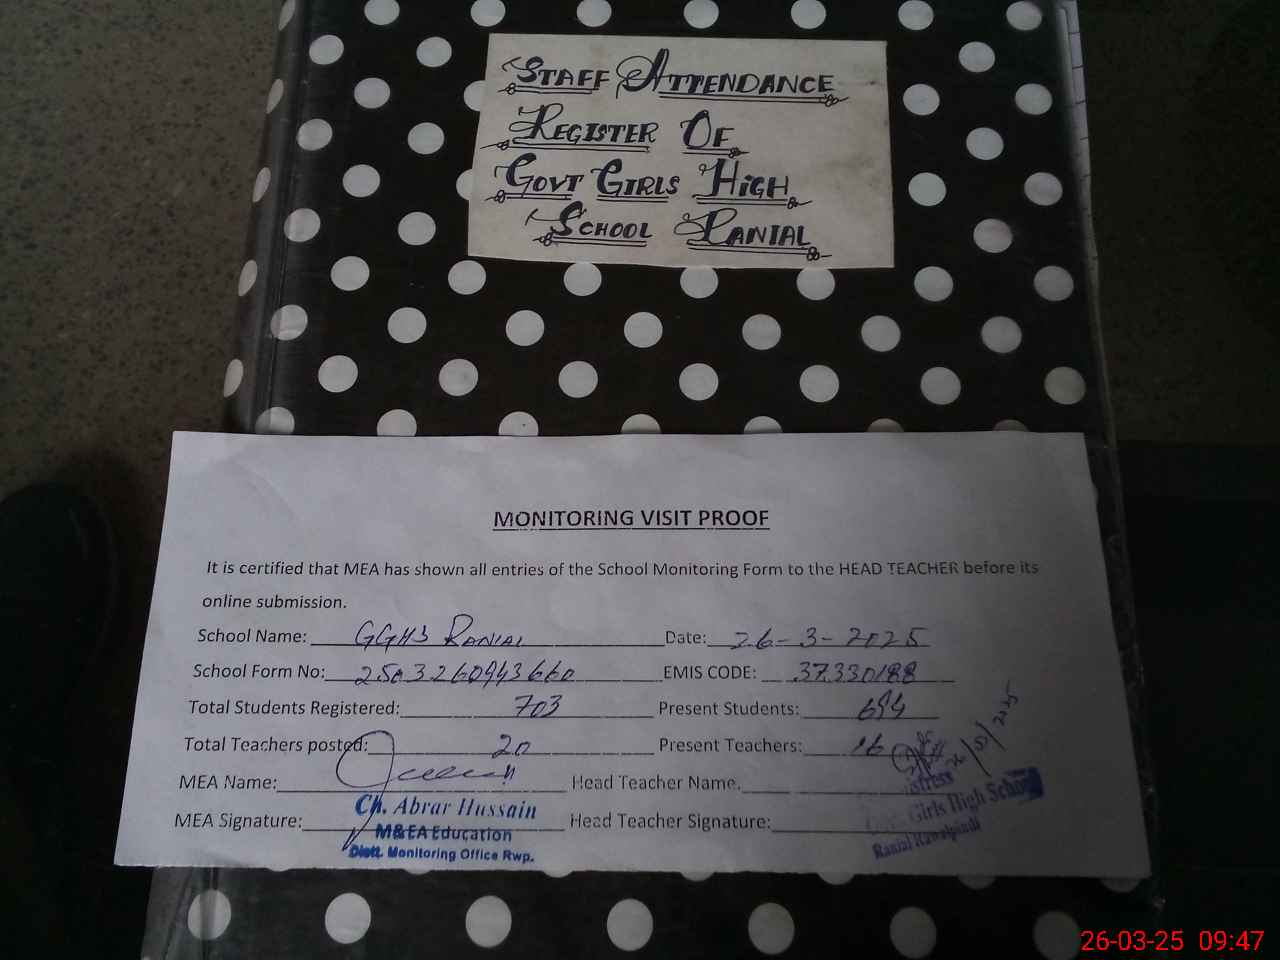 STAFF ATTENDANCE
REGISTER OF
GOVT GIRLS HIGH
SCHOOL RANIAL
MONITORING VISIT PROOF
It is certified that MEA has shown all entries of the School Monitoring Form to the HEAD TEACHER before its
online submission.
School Name: GGHS RANIAL Date: 26-3-2025
School Form No: EMIS CODE: 37330188
Total Students Registered: 703 Present Students: 694
Total Teachers posted: 20 Present Teachers: 16
MEA Name: Head Teacher Name.
MEA Signature: Head Teacher Signature:
Ch. Abrar Hussain
M&EA Education
Distt. Monitoring Office Rwp.
Girls High School
Ranial Rawalpindi
26-03-25 09:47